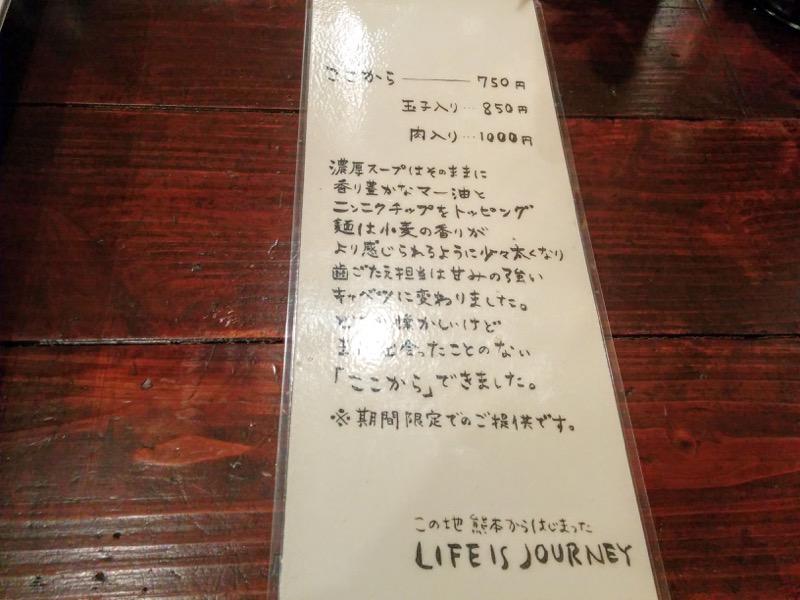 ここから ――― 750円
玉子入り… 850円
肉入り… 1000円
濃厚スープはそのままに
香り豊かなマー油と
ニンニクチップをトッピング
麺は小麦の香りが
より感じられるように少々太くなり
歯ごたえ担当は甘みの強い
キャベツに変わりました。
懐かしいけど
出会ったことのない
「ここから」できました。
※期間限定でのご提供です。
この地 熊本からはじまった
LIFE IS JOURNEY